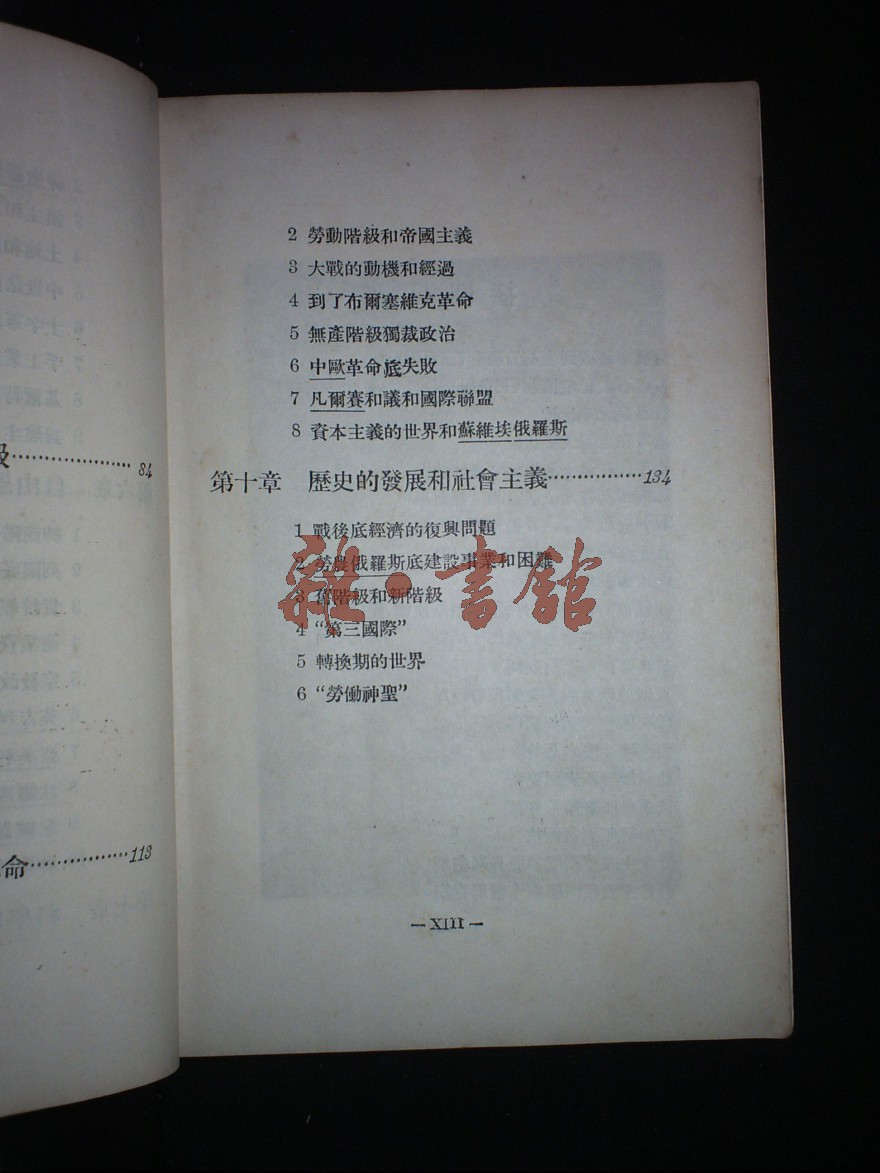 級…………………84
命………………113
2 勞動階級和帝國主義
3 大戰的動機和經過
4 到了布爾塞維克革命
5 無產階級獨裁政治
6 中歐革命底失敗
7 凡爾賽和議和國際聯盟
8 資本主義的世界和蘇維埃俄羅斯
第十章 歷史的發展和社會主義………………134
1 戰後底經濟的復興問題
2 勞農俄羅斯底建設事業和困難
3 舊階級和新階級
4 “第三國際”
5 轉換期的世界
6 “勞働神聖”
雜·書館
— XIII —